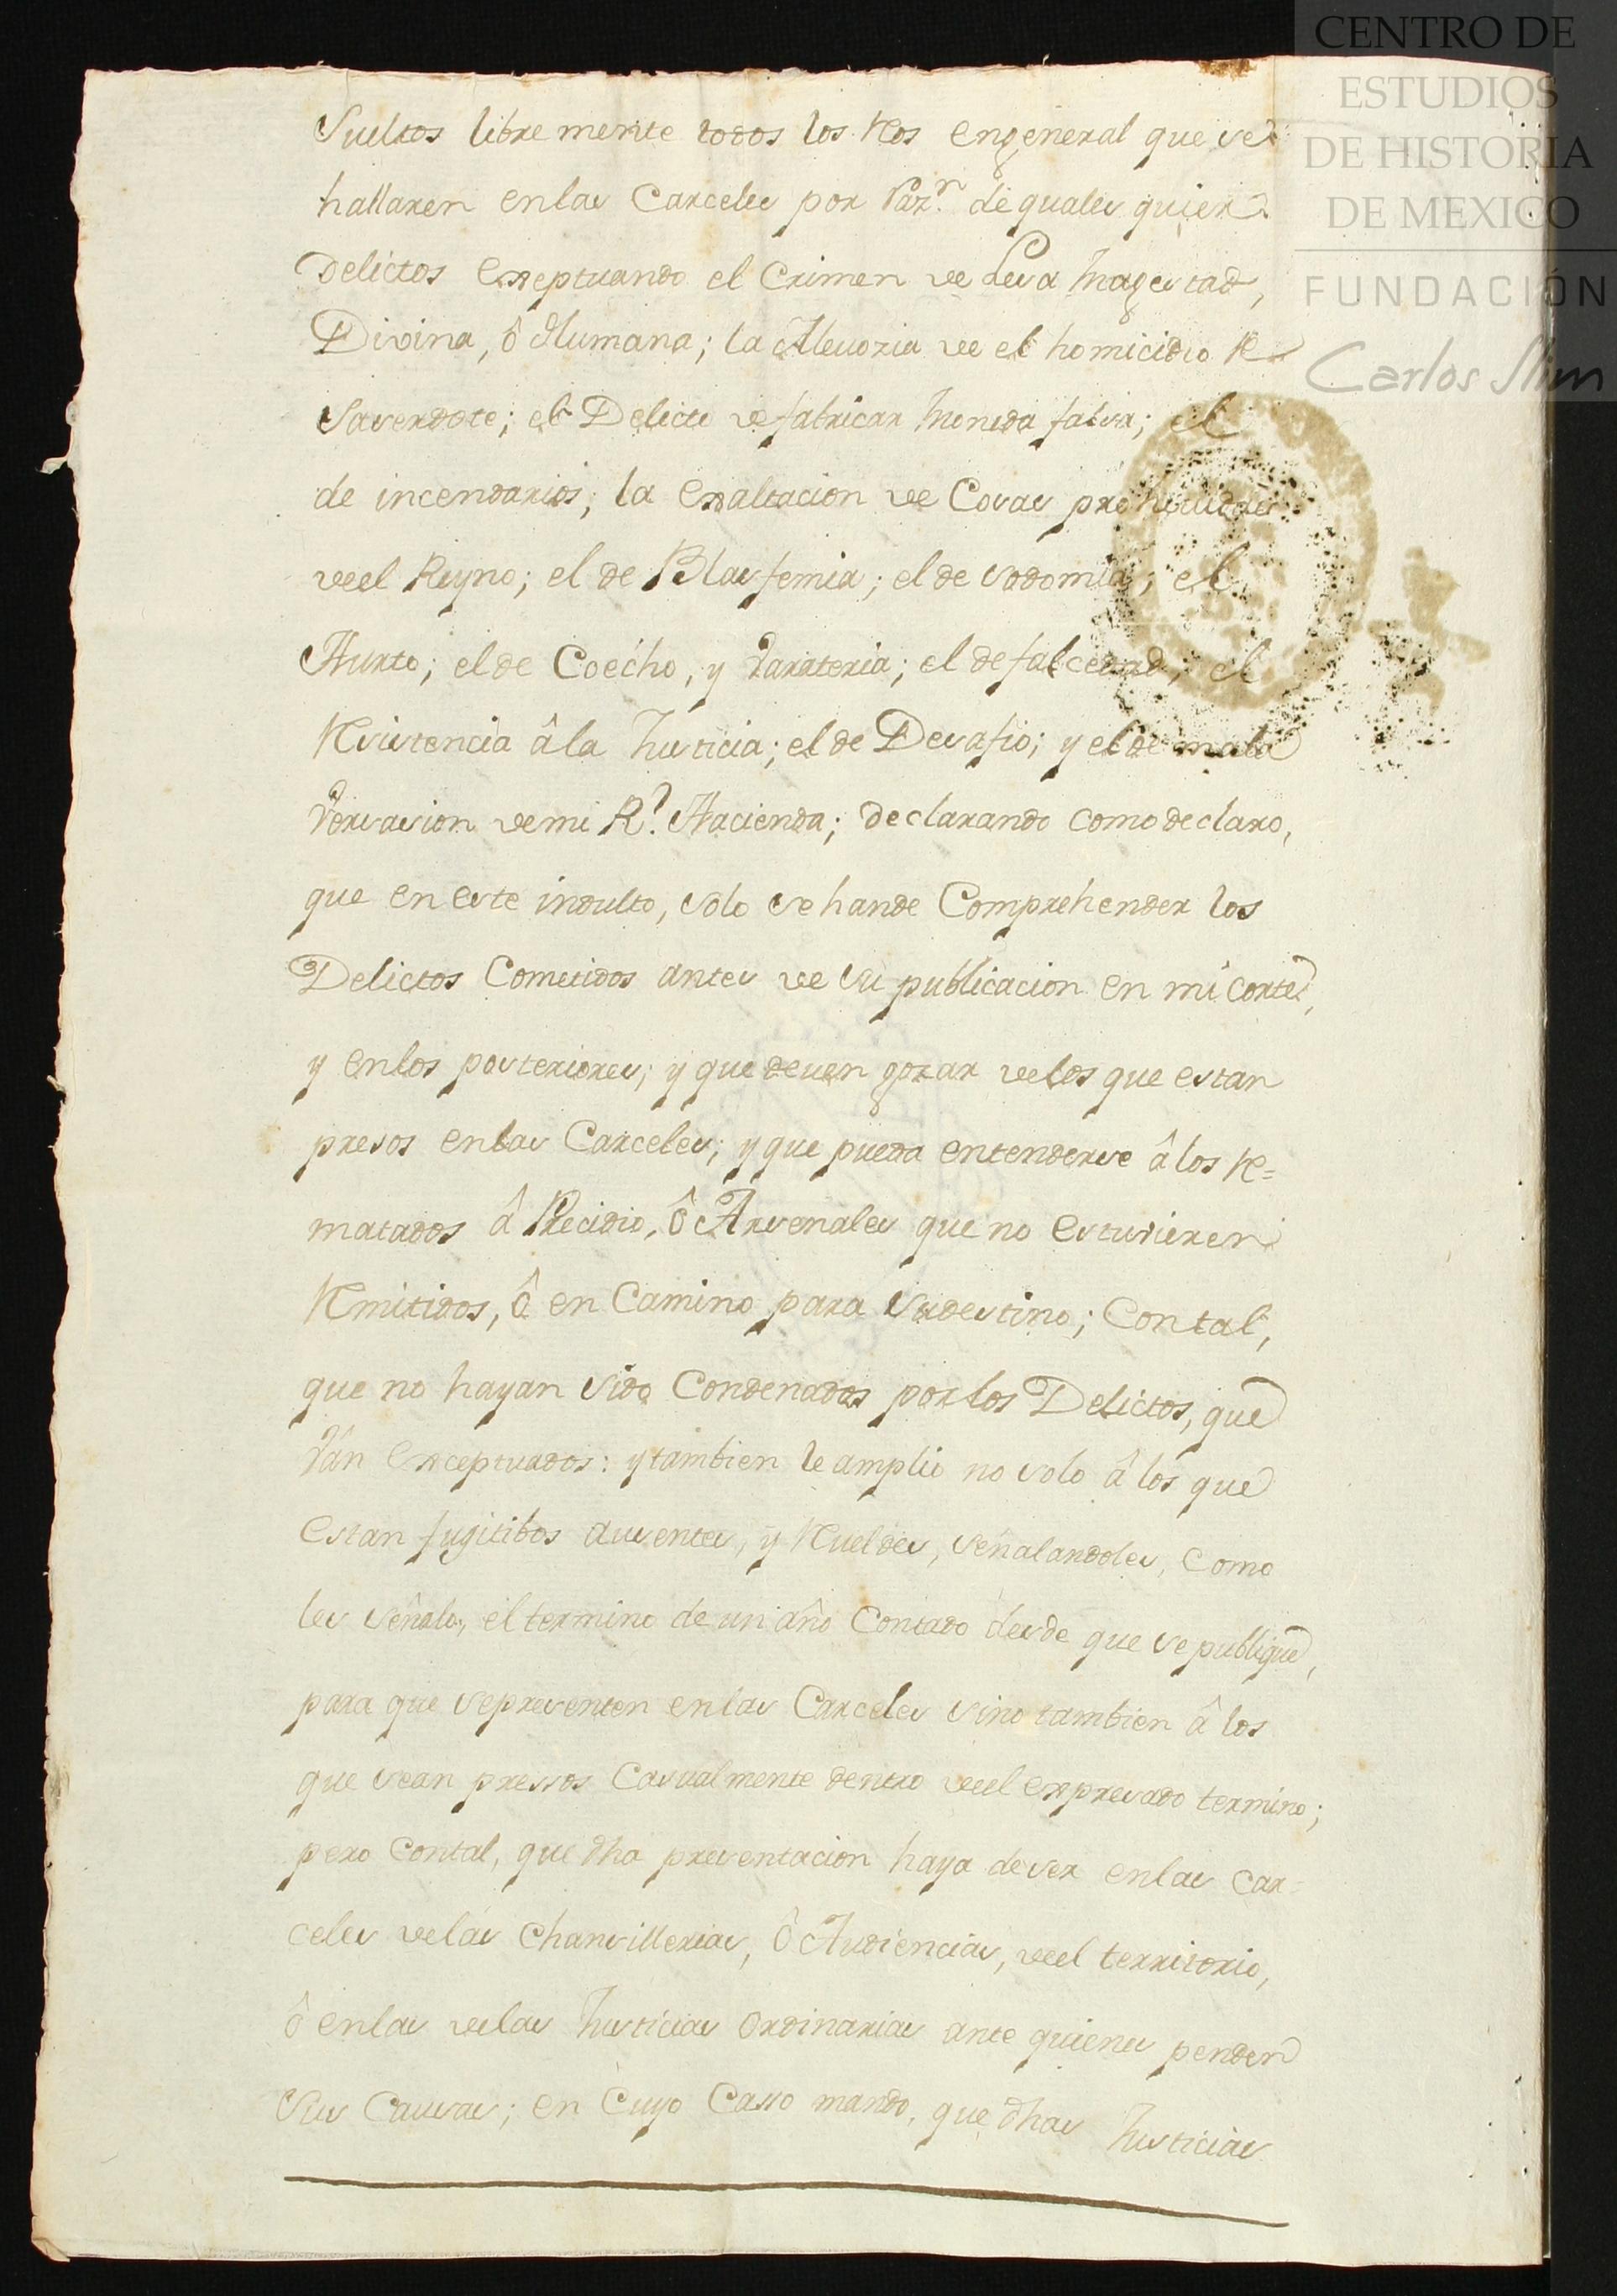 CENTRO DE
ESTUDIOS
DE HISTORIA
DE MEXICO
FUNDACIÓN
Carlos Slim
Sueltos libremente todos los Reos engeneral que se
hallaren enlas Carceles por Raz.n de quales quiera
Delictos exseptuando el Crimen de Lesa Magestad,
Divina, ô Humana; la Alevozia de el homicidio de
Saserdote; el Delicto de fabricar Moneda falsa; el
de incendarios; la exaltacion de Cosas prohividas
deel Reyno; el de Blasfemia; el de sodomia; el
Hurto; el de Coecho, y Varateria; el de falcedad; el
Resistencia âla Justicia; el de Desafio; y el de mala
Versasion de mi R.l Hacienda; declarando como declaro,
que en este indulto, solo se hande Comprehender los
Delictos Cometidos antes de su publicacion en mi corte,
y enlos posteriores; y que deven gozar delos que estan
presos enlas Carceles; y que pueda entenderse âlos re=
matados â Precidio, ô Arsenales que no estuvieren
Remitidos, ô en Camino para sudestino; Contal,
que no hayan sido Condenados porlos Delictos, que
Vân exceptuados: y tambien le amplio no solo â los que
Estan fugitibos ausentes, y Rueldes, señalandoles, como
les señalo, el termino de un año Contado desde que se publique,
para que sepresenten enlas Carceles sino tambien â los
que sean pressos Casualmente dentro deel expresado termino;
pero Contal, que dha presentacion haya deser enlas Car-
celes delas Chansillerias, ô Audiencias, deel territorio,
ô enlas delas Justicias Ordinarias ante quienes penden
Sus Causas; en Cuyo Casso mando, que dhas Justicias